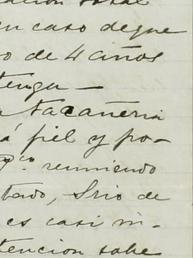 en caso de que
o de 4 años
tenga —
a tacañeria
á fiel y po-
reuniendo
tado, Srio de
es casi in-
tencion sabe